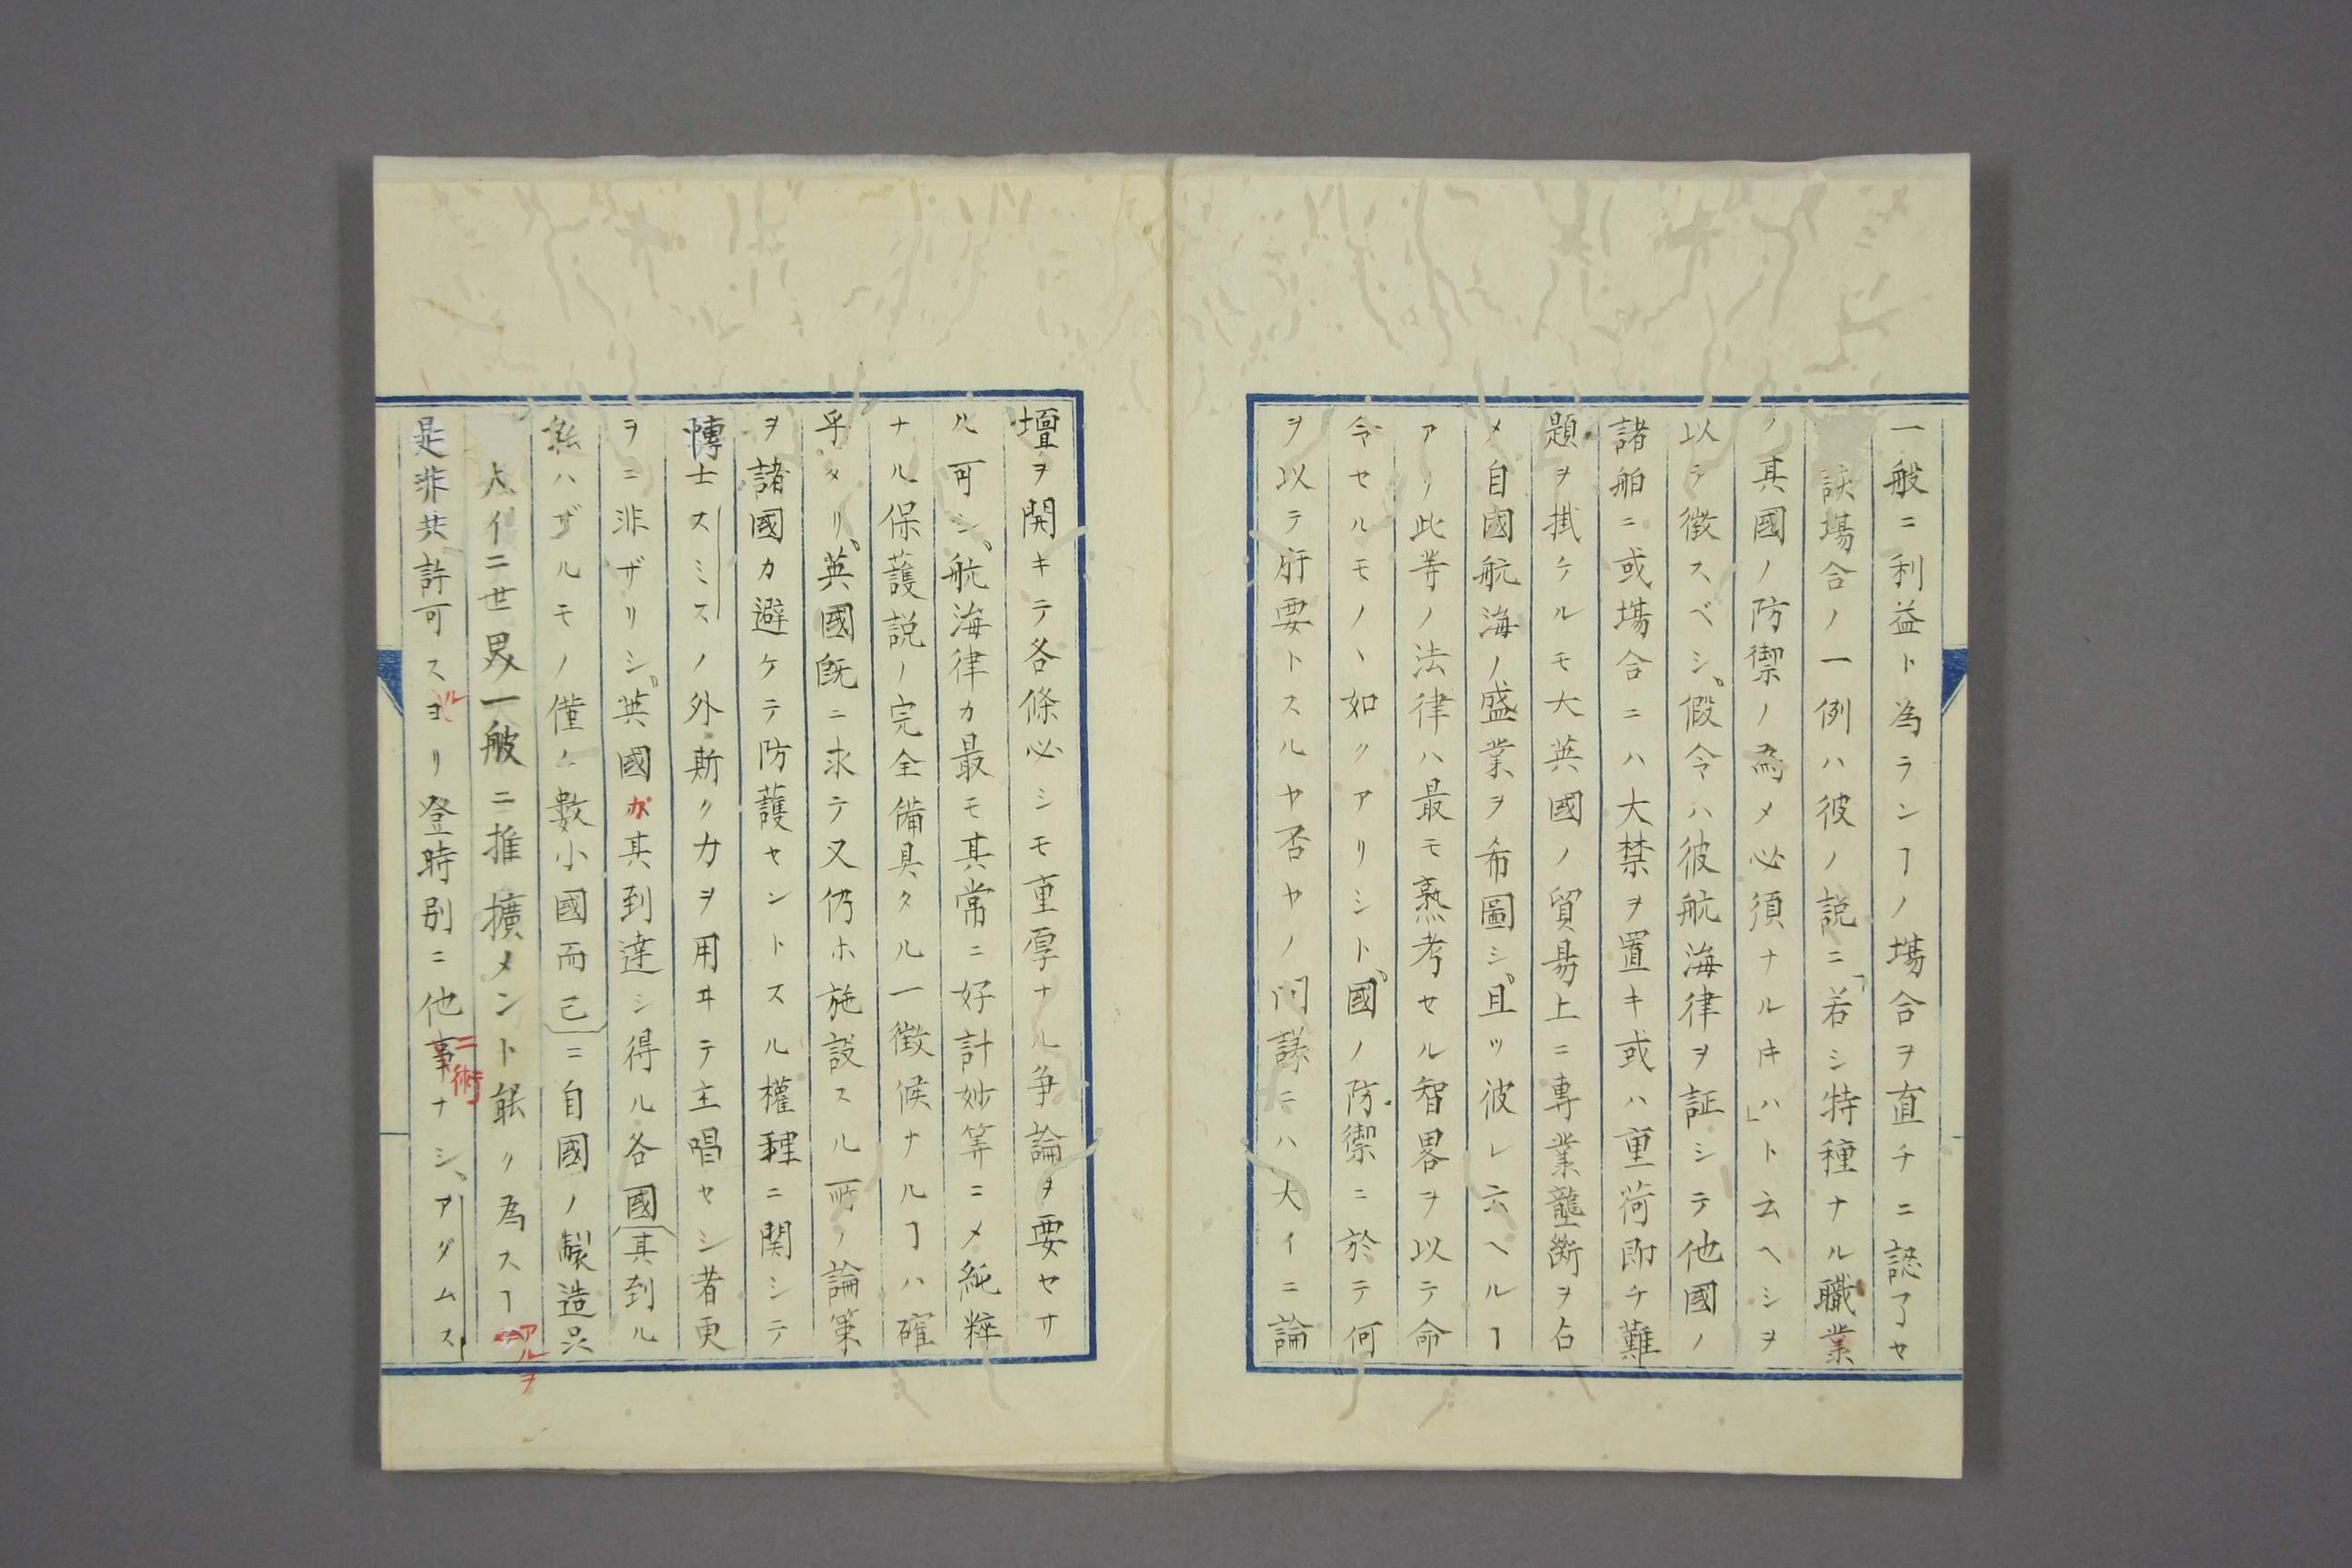 一般ニ利益ト為ランヿノ場合ヲ直チニ認了セ
該場合ノ一例ハ彼ノ説ニ「若シ特種ナル職業
ノ其國ノ防禦ノ為メ必須ナルキハ」ト云ヘシヲ
以テ徴スベシ、假令ハ彼航海律ヲ証シテ他國ノ
諸舶ニ或場合ニハ大禁ヲ置キ或ハ重荷即チ難
題ヲ掛ケルモ大英國ノ貿易上ニ専業壟断ヲ占
メ自國航海ノ盛業ヲ希圖シ、且ツ彼レ云ヘルヿ
アリ此等ノ法律ハ最モ熟考セル智畧ヲ以テ命
令セルモノヽ如クアリシト、國ノ防禦ニ於テ何
ヲ以テ肝要トスルヤ否ヤノ問議ニハ大イニ論
壇ヲ開キテ各條必シモ重厚ナル争論ヲ要セサ
ル可シ、航海律カ最モ其常ニ好計妙筭ニメ純粹
ナル保護説ノ完全備具タル一徴候ナルヿハ確
乎タリ、英國既ニ求テ又仍ホ施設スル所ノ論策
ヲ諸國カ避ケテ防護セントスル權理ニ関シテ
博士スミスノ外斯ク力ヲ用ヰテ主唱セシ者更
ヲニ非ザリシ、英國ガ其到達シ得ル各國(其到ル
能ハザルモノ僅々數小國而已)ニ自國ノ製造品
大イニ世界一般ニ推擴メント能ク為スヿアルヲ
是非共許可スルヨリ登時別ニ他事ニ術ナシ、アダムス